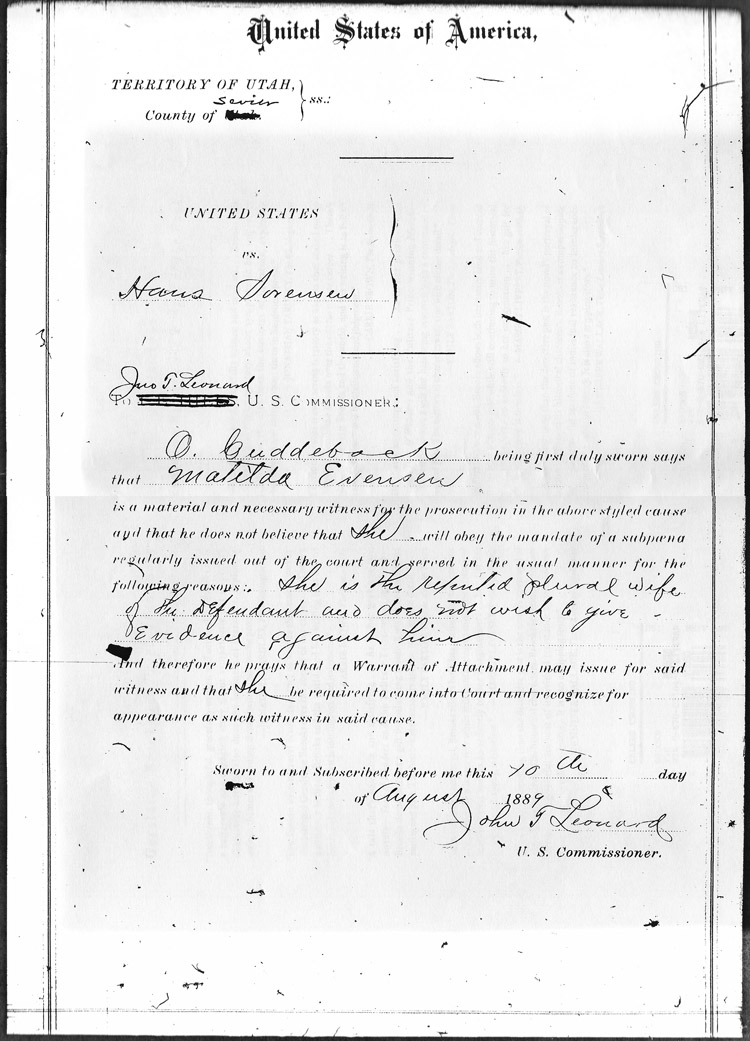 United States of America,
TERRITORY OF UTAH,
Sevier
County of
ss.:
UNITED STATES
vs.
Hans Sorensen
Jno T. Leonard
To U. S. COMMISSIONER:
O. Cuddeback being first duly sworn says
that Matilda Evensen
is a material and necessary witness for the prosecution in the above styled cause
and that he does not believe that she will obey the mandate of a subpœna
regularly issued out of the court and served in the usual manner for the
following reasons: she is the reputed plural wife
of the Defendant and does not wish to give
Evidence against him
And therefore he prays that a Warrant of Attachment may issue for said
witness and that she be required to come into Court and recognize for
appearance as such witness in said cause.
Sworn to and Subscribed before me this 10th day
of August 1889
John T Leonard
U. S. Commissioner.